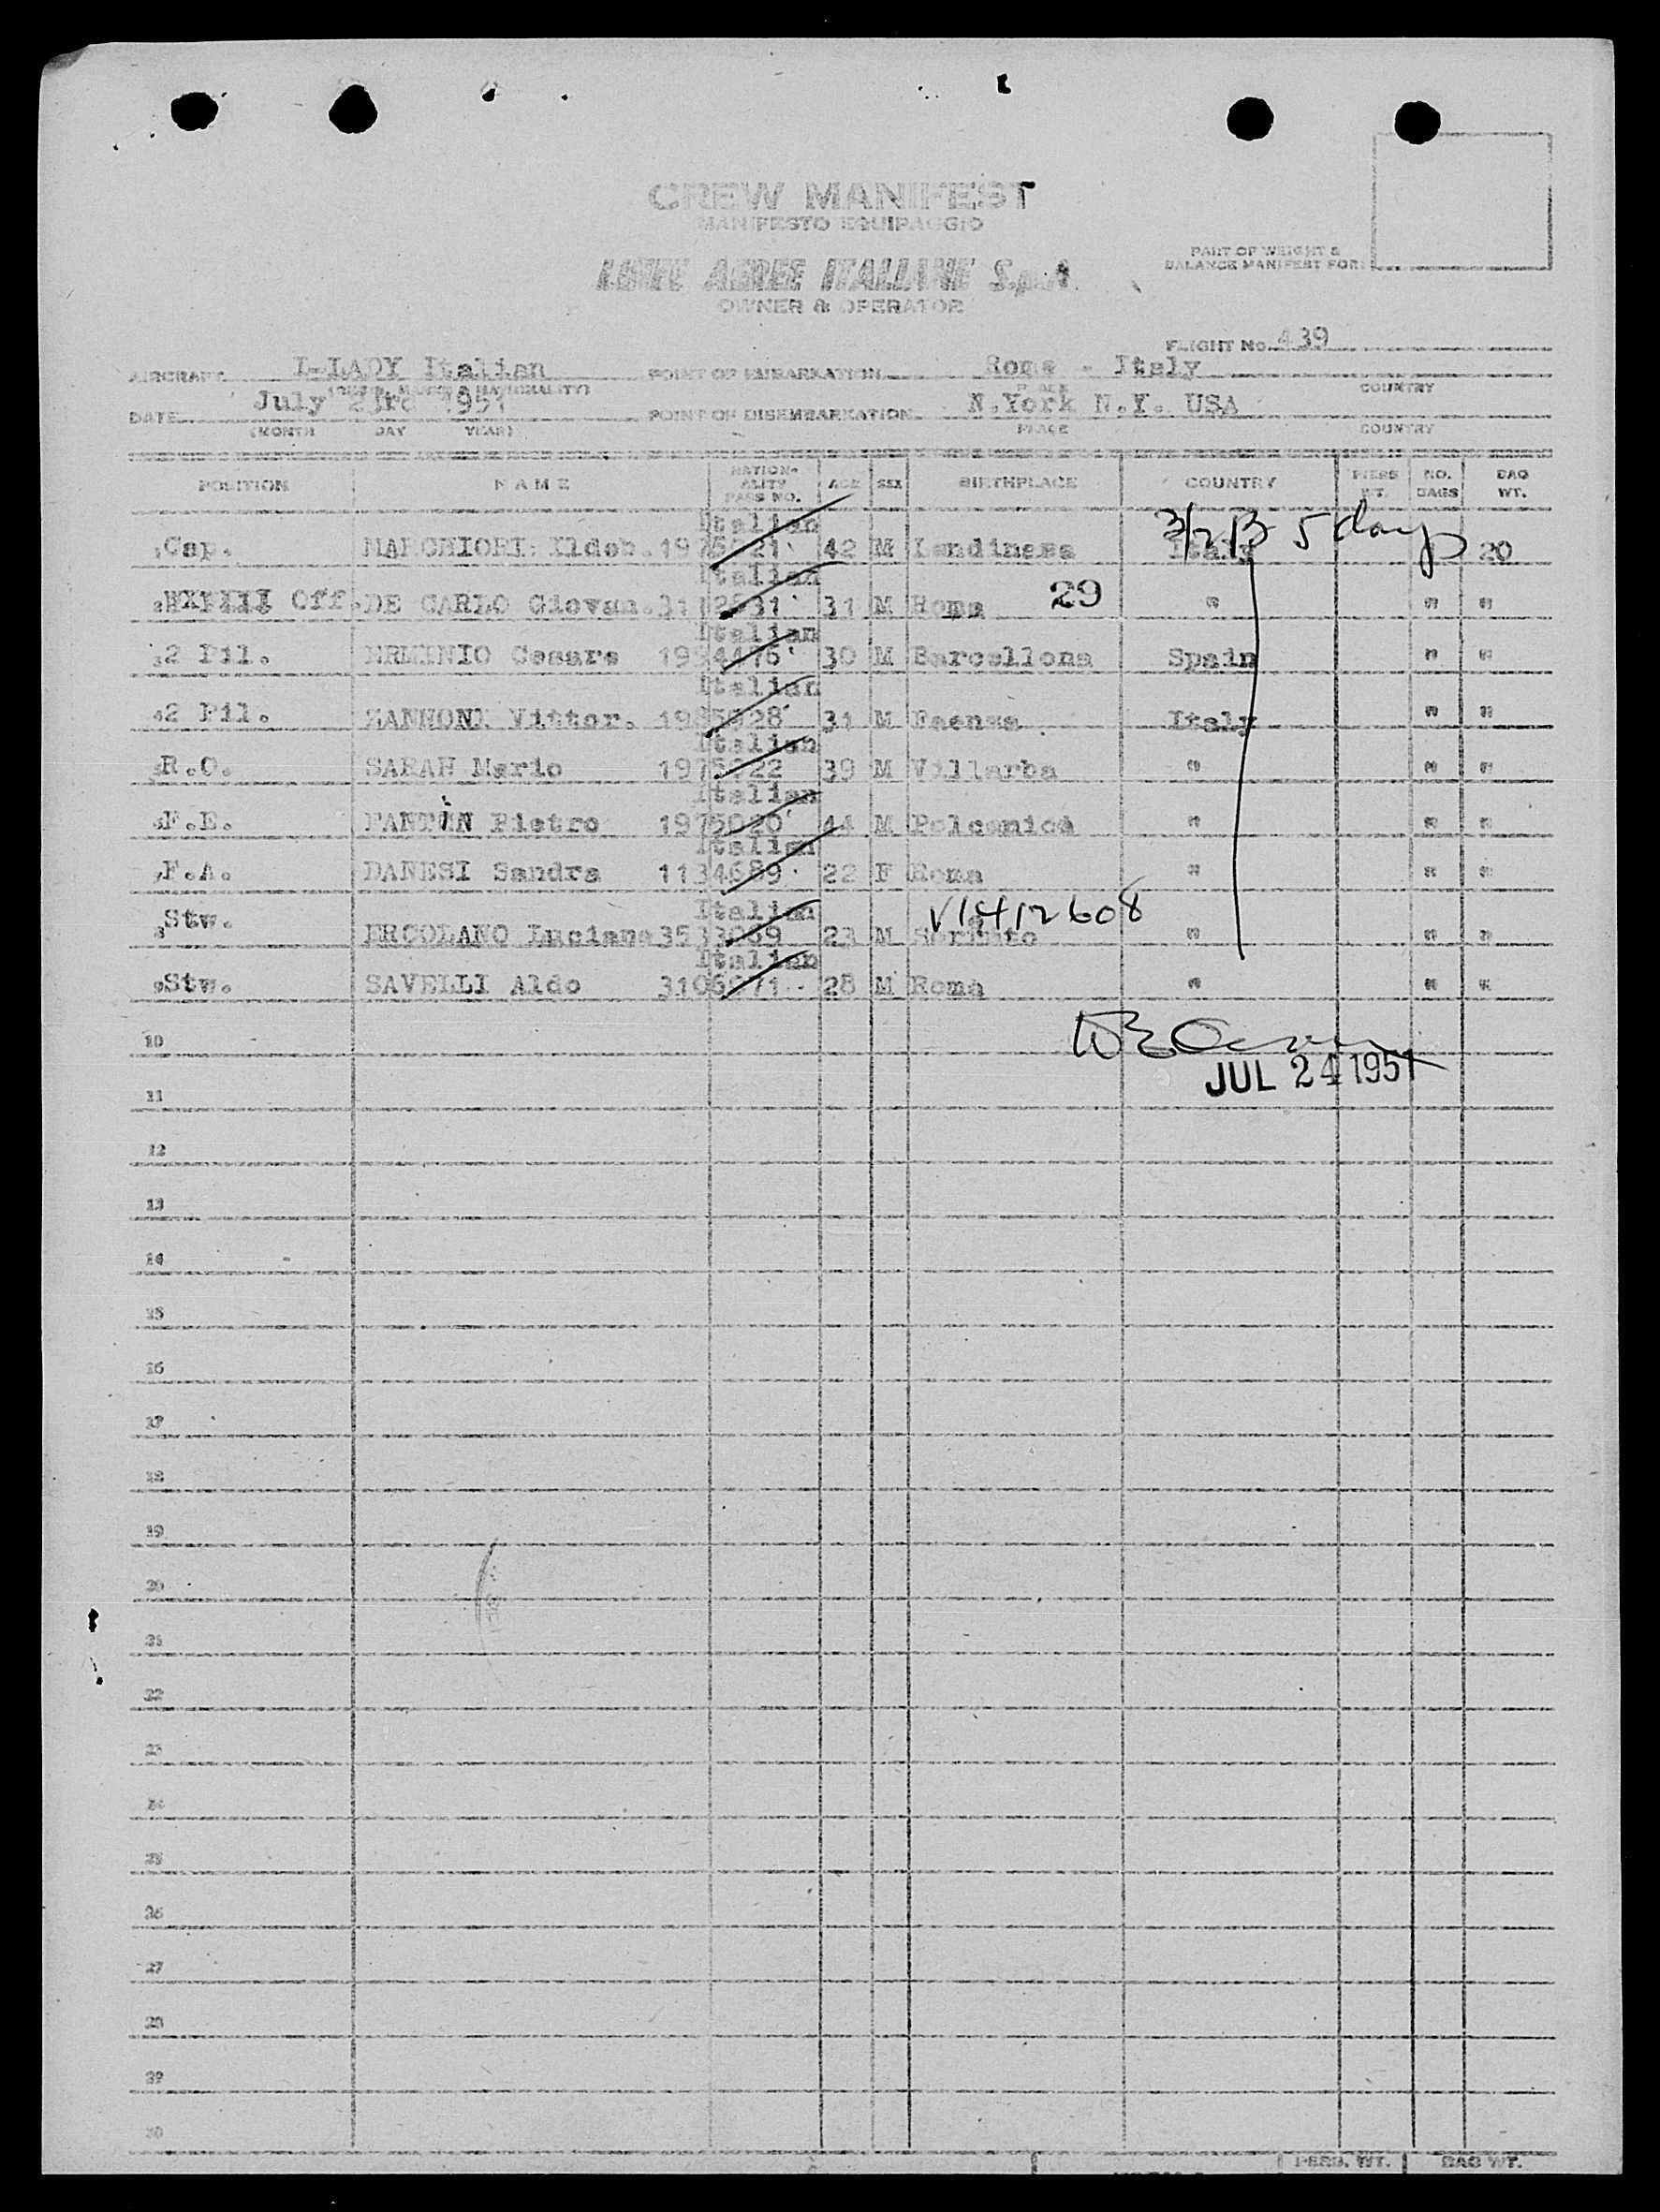 CREW MANIFEST
MANIFESTO EQUIPAGGIO
LINEE AEREE ITALIANE S.p.A.
OWNER & OPERATOR
PART OF WEIGHT &
BALANCE MANIFEST FOR:
FLIGHT NO. 439
AIRCRAFT I-LADY Italian POINT OF EMBARKATION Roma - Italy
PLACE COUNTRY
DATE July 23rd 1951 POINT OF DISEMBARKATION N.York N.Y. USA
(MONTH DAY YEAR) PLACE COUNTRY
POSITION NAME NATION-ALITY PASS NO. AGE SEX BIRTHPLACE COUNTRY PERS WT. NO. BAGS BAG WT.
Italian 3/2 B 5 days
1 Cap. MARCHIORI Ildeb. 1975021 42 M Lendinara Italy 20
Italian
2 Off. DE CARLO Giovan. 31 31 M Roma 29 " " "
Italian
3 2 Pil. ERMINIO Cesare 1954476 30 M Barcellona Spain " "
Italian
4 2 Pil. ZANNONI Vittor. 1985028 31 M Faenza Italy " "
Italian
5 R.O. SARAN Mario 1975022 39 M Villarba " " "
Italian
6 F.E. FANTIN Pietro 1975020 44 M Polcenico " " "
Italian
7 F.A. DANESI Sandra 1134689 22 F Roma " " "
Italian V1412608
8 Stw. ERCOLANO Luciano 3533069 23 M Sorrento " " "
Italian
9 Stw. SAVELLI Aldo 3106971 28 M Roma " " "
10
JUL 24 1951
11
12
13
14
15
16
17
18
19
20
21
22
23
24
25
26
27
28
29
30
PERS. WT. BAG WT.